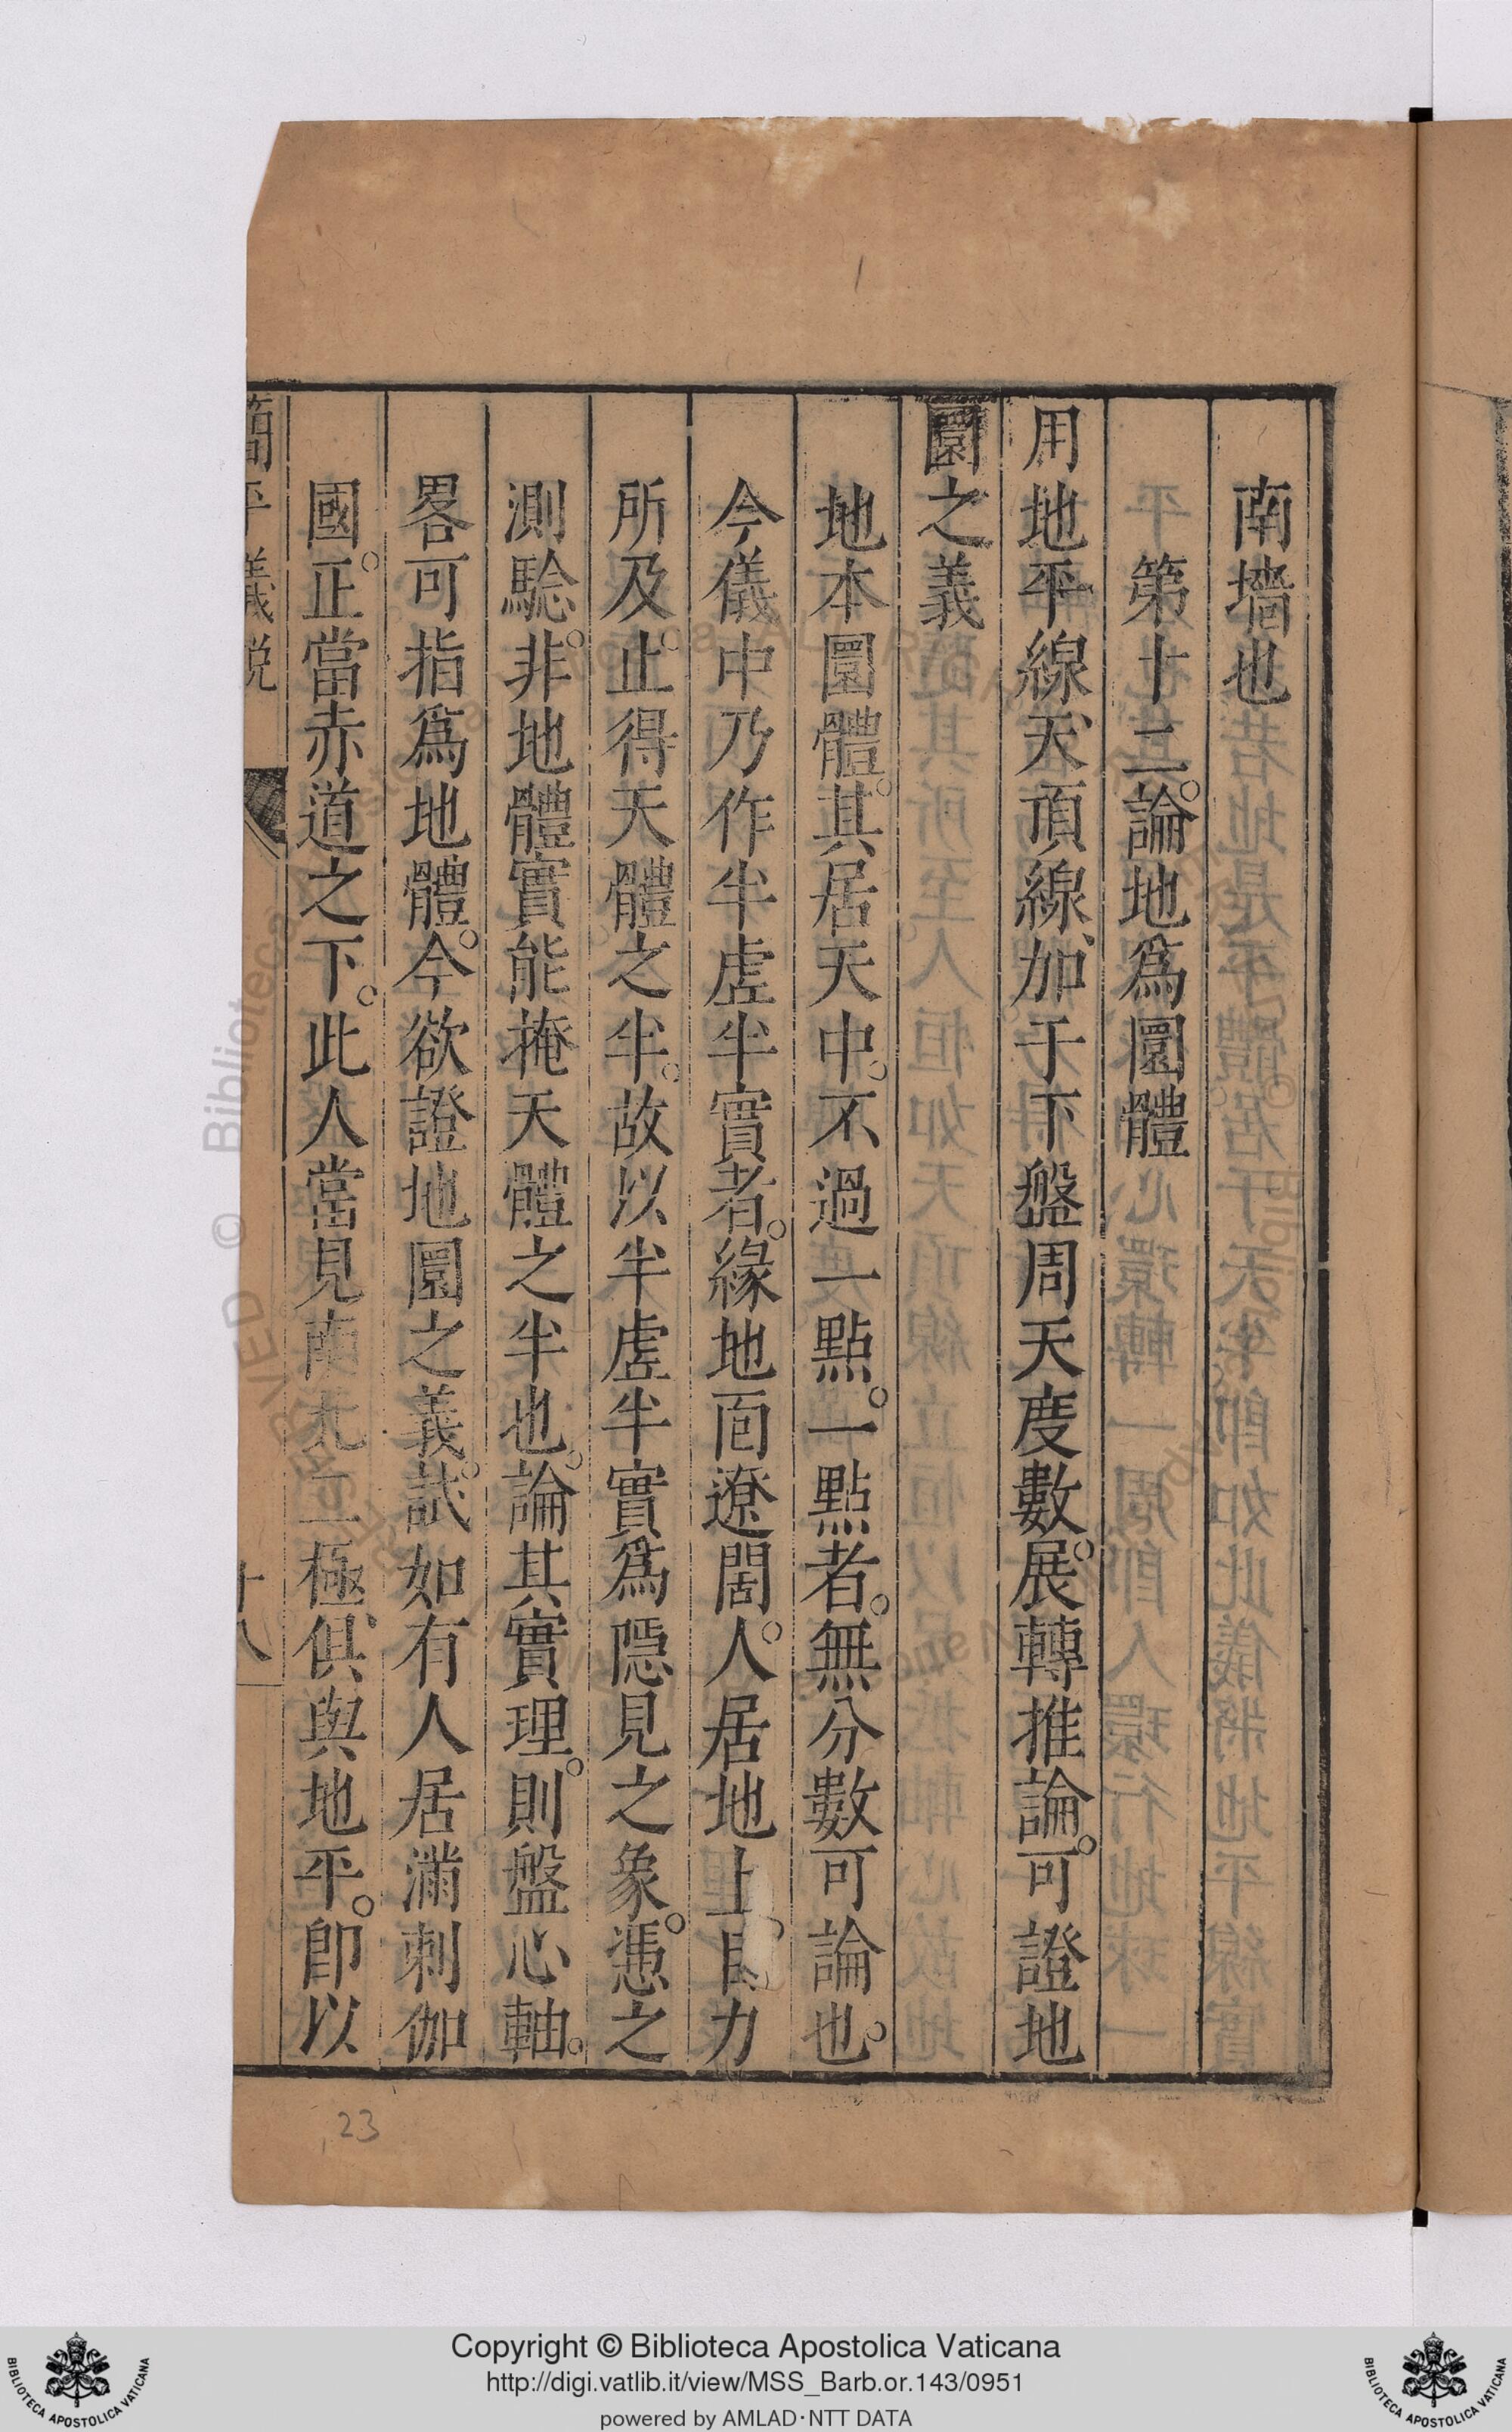 南墻也
第十二。論地爲圜體
用地平線、天頂線、加于下盤周天度數。展轉推論。可證地
圜之義
地本圜體。其居天中。不過一點。一點者。無分數可論也。
今儀中乃作半虛半實者。緣地面遼闊。人居地上。目力
所及。止得天體之半。故以半虛半實爲隱見之象。慿之
測驗。非地體實能掩天體之半也。論其實理。則盤心軸。
畧可指爲地體。今欲證地圜之義。試如有人居滿剌伽
國。正當赤道之下。此人當見南北二極、俱與地平。卽以
簡平儀說
十八
23
Copyright © Biblioteca Apostolica Vaticana
http://digi.vatlib.it/view/MSS_Barb.or.143/0951
powered by AMLAD·NTT DATA
BIBLIOTECA APOSTOLICA VATICANA
BIBLIOTECA APOSTOLICA VATICANA